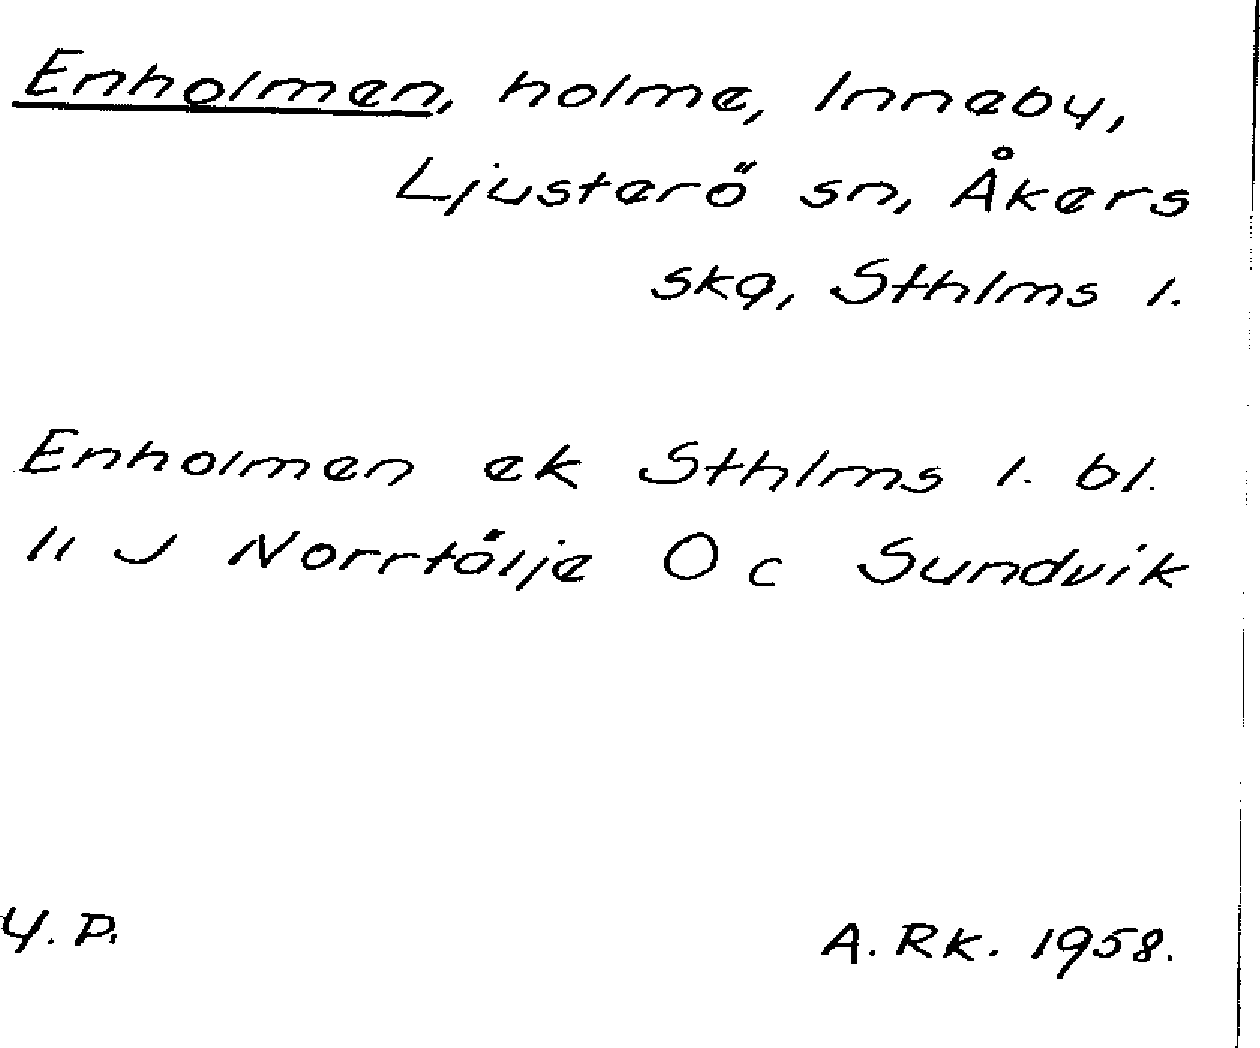 Enholmen, holme, Inneby,
Ljusterö sn, Åkers
skg, Sthlms l.
Enholmen ek Sthlms l. bl.
11 J Norrtälje O c Sundvik
Y. P.
A. RK. 1958.